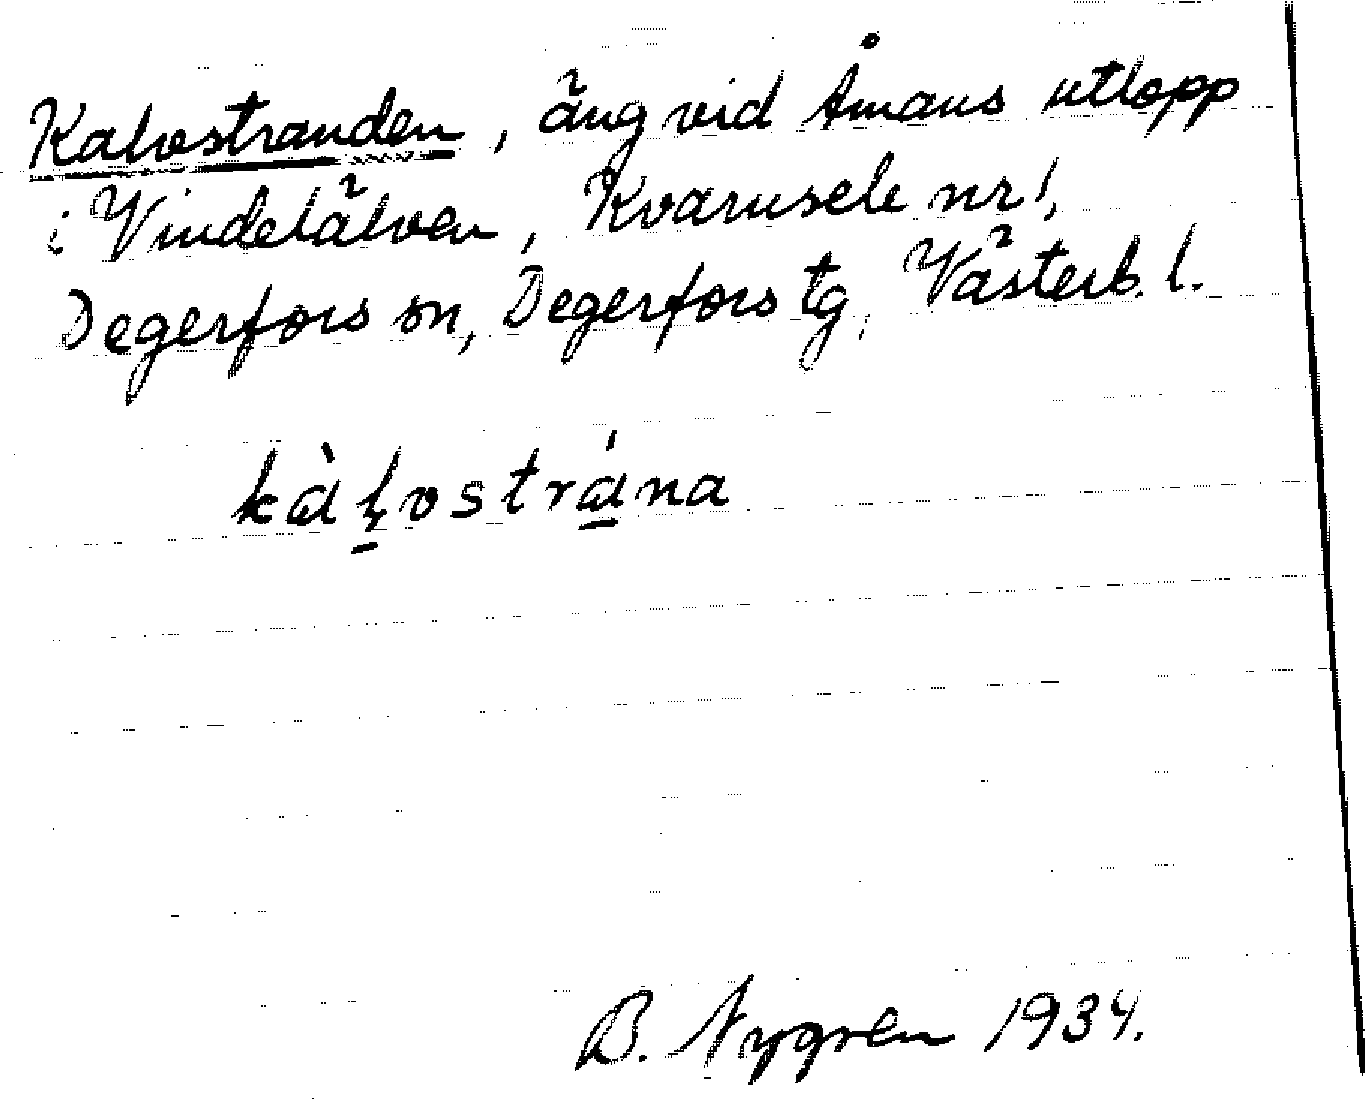 Kalvostranden, äng vid Åmans utlopp
i Vindelälven, Kvarnsele nr 1,
Degerfors sn, Degerfors tg, Västerb. l.
kàḷvostrána
B. Nygren 1934.